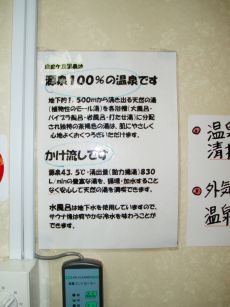 源泉100%の温泉です
地下約1,500mから湧き出る天然の湯
(植物性のモール湯)を各浴槽(大風呂・
バイブラ風呂・岩風呂・打たせ湯)に分配
され独特の茶褐色の湯は、肌にやさしく
心地よくおくつろぎいただけます。
かけ流しです
源泉43.5℃・湧出量(動力揚湯)830
L/minの豊富な湯を、循環・加水すること
なく安心して天然の湯を満喫できます。
水風呂は地下水を使用していますので、
サウナ後は爽やかな冷水を味わうことが
できます。
温泉
清掃
外気
温泉